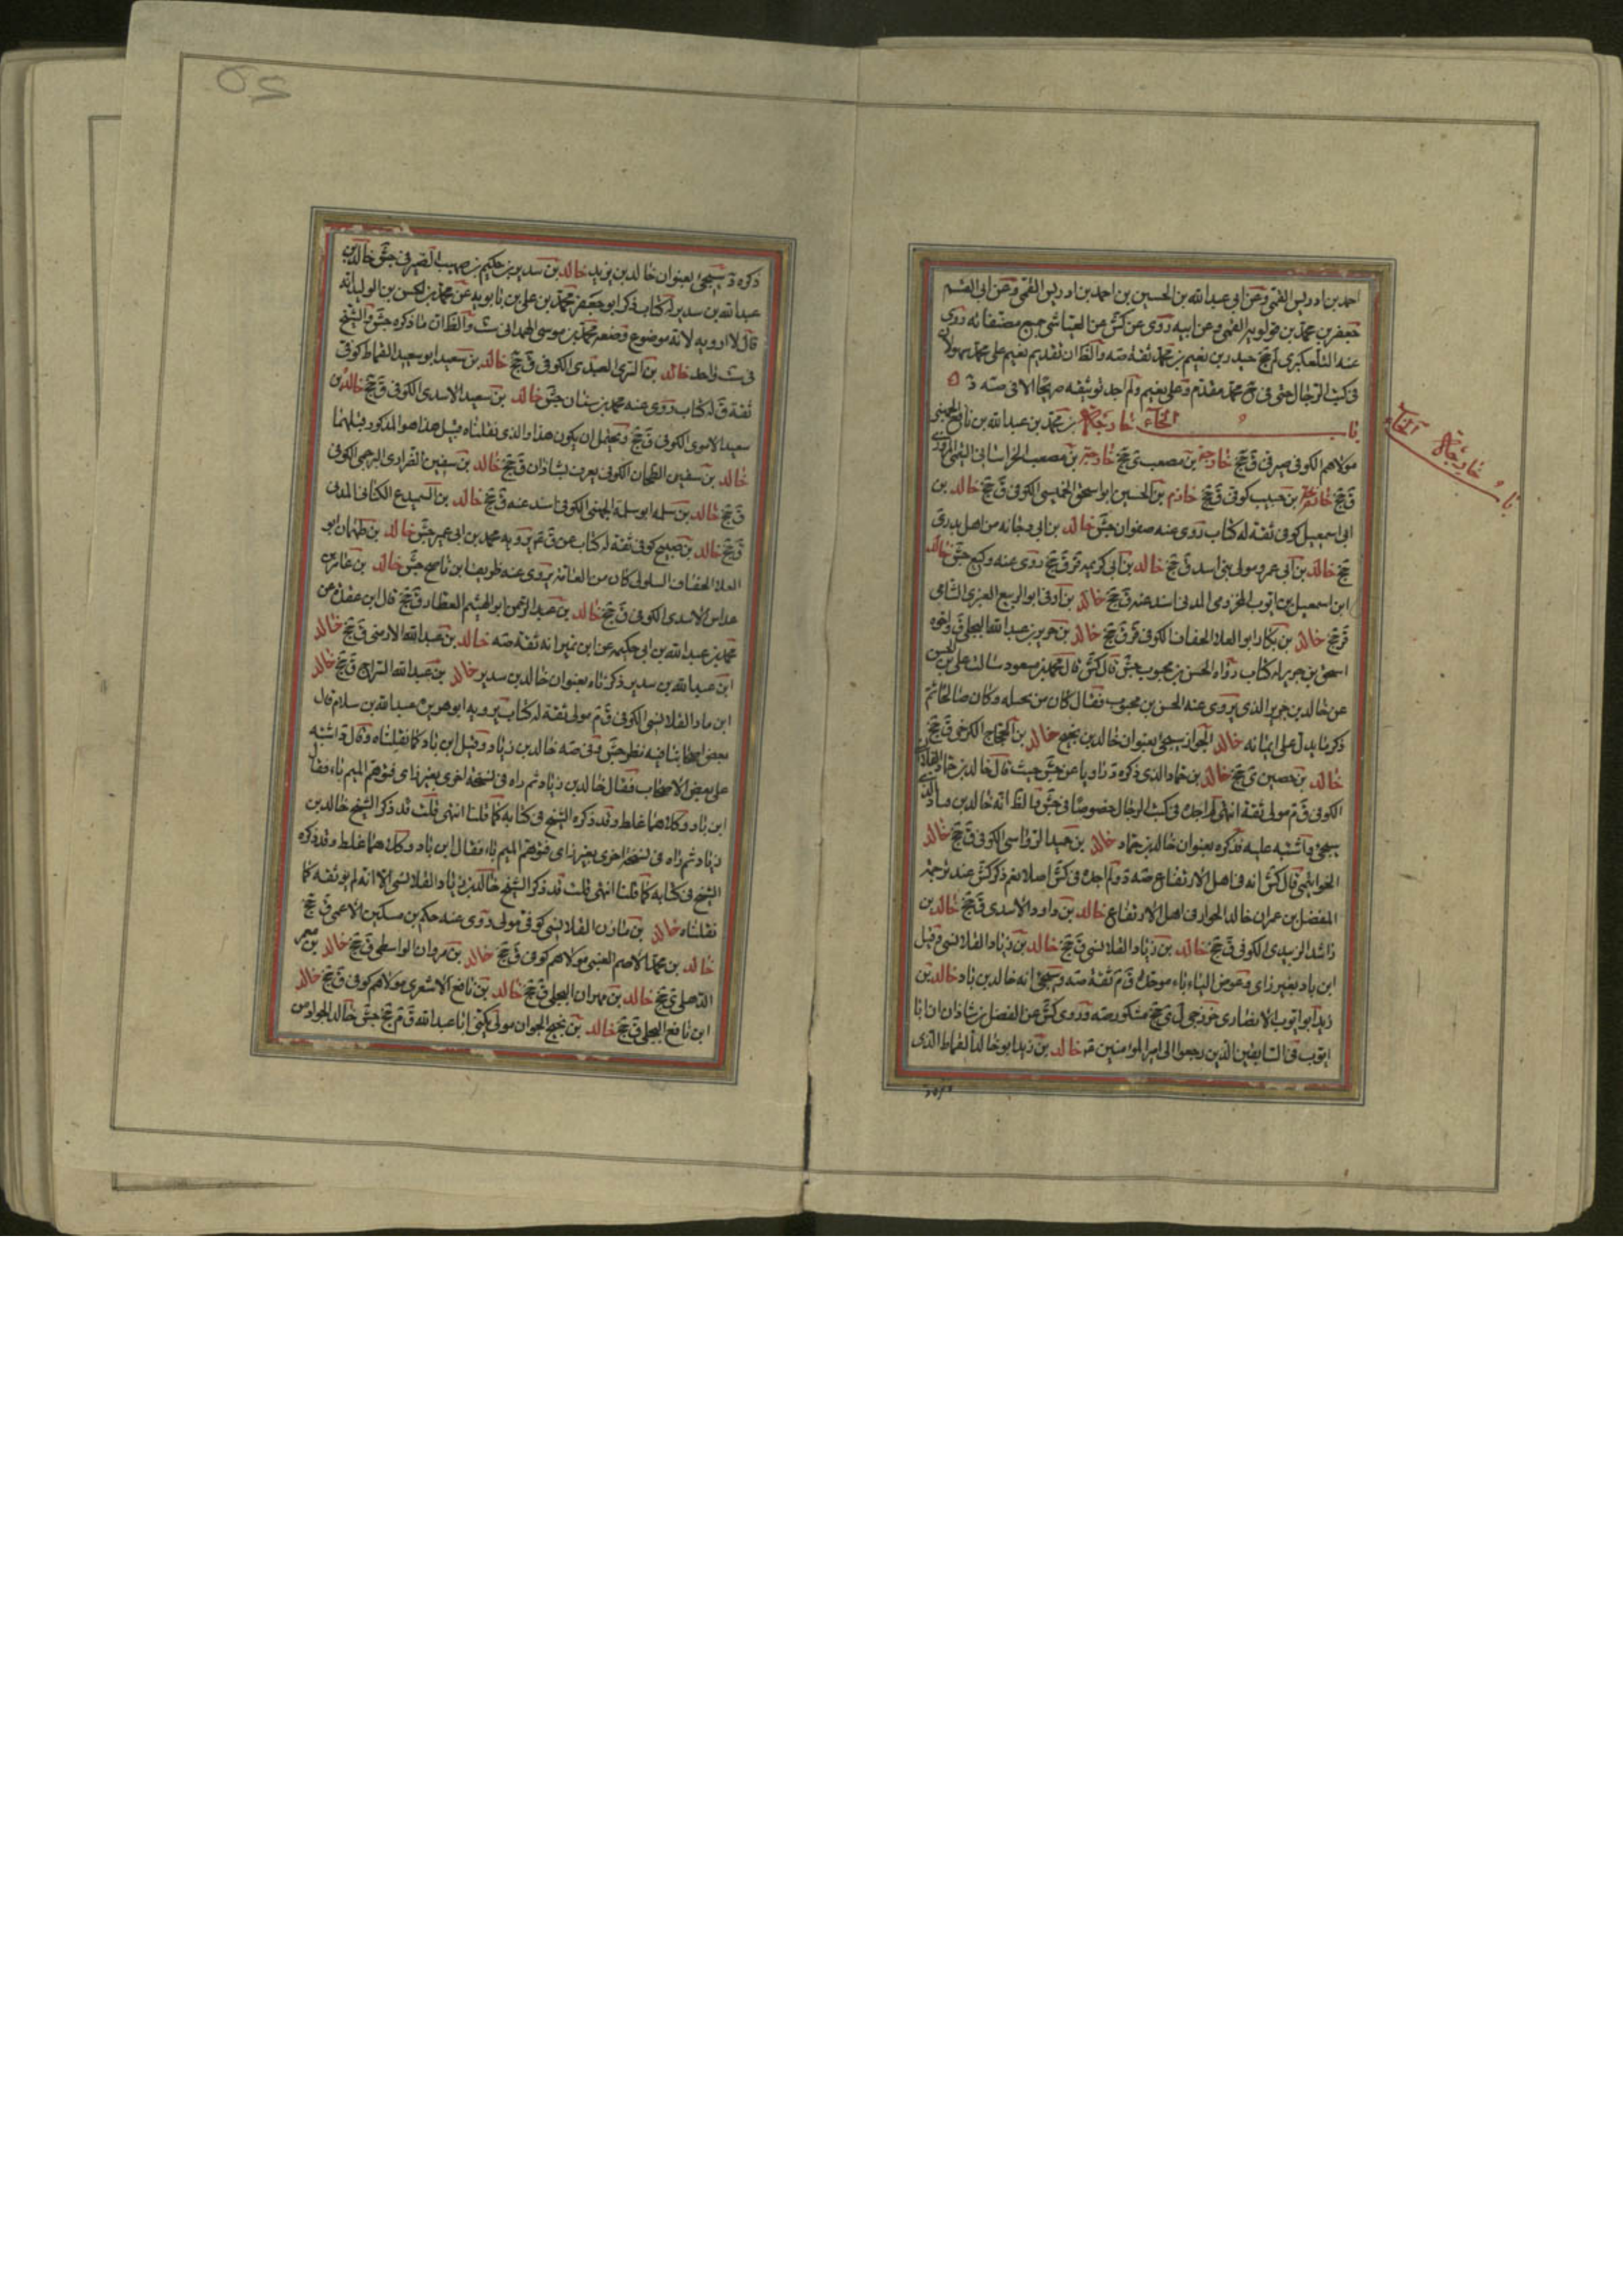 احمد بن ادريس القمى وعن ابى عبد الله بن الحسين بن احمد بن ادريس القمى وعن ابى القسم
جعفر بن محمد بن قولويه القمى وعن ابيه روى عن كش عن العياشى جميع مصنفاته روى
عنه التلعكبرى لم جخ حيدر بن نعيم بن محمد ثقة صه والظ ان تقديم نعيم على محمد سهو لان
فى كتب الرجال حتى فى جخ محمد مقدم على نعيم ولم اجد توثيقه صريحا الا فى صه
باب الخاء خارجة بن محمد بن عبد الله بن نافع الجهنى
مولاهم الكوفى صيرفى ق جخ خارجة بن مصعب ى جخ خارجة بن مصعب الخراسانى التيمى المروزى
ق جخ بن حبيب كوفى ق جخ خازم بن الحسين ابو اسحق الخميسى الكوفى ق جخ خالد بن
ابى اسمعيل كوفى ثقة له كتاب روى عنه صفوان جش خالد بن ابى دجانه من اهل بدر ى
جخ خالد بن ابى عمرو مولى بنى اسد ق جخ خالد بن ابى كريمه قر ق جخ روى عنه وكيع جش خالد
ابن اسمعيل بن ايوب المخزومى المدنى اسند عنه ق جخ خالد بن اوفى ابو الربيع العنزى الشامى
قر جخ خالد بن بكار ابو العلاء الخفاف الكوفى قر ق جخ خالد بن جرير بن عبد الله البجلى ق واخوه
اسحق بن جرير له كتاب رواه الحسن بن محبوب جش قال كش قال محمد بن مسعود سالت على بن الحسن
عن خالد بن جرير الذى يروى عنه الحسن بن محبوب فقال كان من بجيله وكان صالحا ثم
ذكر ما يدل على ايمانه خالد الجواز سيجئ بعنوان خالد بن نجيح خالد بن الحجاج الكرخى ق جخ
خالد بن حصين ى جخ خالد بن حماد الذى ذكره د ناويا عن جش حيث قال خالد بن حماد القلانسى
الكوفى ق م مولى ثقة انتهى لم اجده فى كتب الرجال خصوصا فى جش فالظ انه خالد بن ماد الذى
سيجئ واشتبه عليه فذكره بعنوان خالد بن حماد خالد بن حميد الرواسى الكوفى ق جخ خالد
الخواتيمى قال كش انه فى اهل الارتفاع صه د ولم اجده فى كش اصلا نعم ذكر كش عند ترجمة
المفضل بن عمران خالدا الجواز فى اهل الارتفاع خالد بن داود الاسدى ق جخ خالد بن
راشد الزبيدى الكوفى ق جخ خالد بن زياد القلانسى ق جخ خالد بن زياد القلانسى وقيل
ابن باد بغير زاى وعوض الياء باء موحدة ق م ثقة صه وسيجئ انه خالد بن ماد خالد بن
زيد ابو ايوب الانصارى خزرجى ل ى جخ مشكور صه د وروى كش عن الفضل بن شاذان ان ابا
ايوب فى السابقين الذين رجعوا الى امير المؤمنين عم خالد بن زيد ابو خالد القماط الذى
ذكره
باب الخاء خارجة
ذكره د سيجئ بعنوان خالد بن يزيد خالد بن سدير بن حكيم بن صهيب الصيرفى جش خالد بن
عبد الله بن سدير له كتاب ذكر ابو جعفر محمد بن على بن بابويه عن محمد بن الحسن بن الوليد انه
قال لا ارويه لانه موضوع وضعه محمد بن موسى الهمدانى ست والظ ان ما ذكره جش والشيخ
فى ست واحد خالد بن السرى العبدى الكوفى ق جخ خالد بن سعيد ابو سعيد القماط كوفى
ثقة ق له كتاب روى عنه محمد بن سنان جش خالد بن سعيد الاسدى الكوفى ق جخ خالد بن
سعيد الاموى الكوفى ق جخ ويحتمل ان يكون هذا والذى نقلناه قبيل هذا هو المذكور قبلهما
خالد بن سفيان الطحان الكوفى يعرف بشاذان ق جخ خالد بن سفين الفزارى البرجمى الكوفى
ق جخ خالد بن سلمه ابو سلمة الجهنى الكوفى اسند عنه ق جخ خالد بن السميدع الكنانى المدنى
ق جخ خالد بن صبيح كوفى ثقة له كتاب عن ق عم يرويه محمد بن ابى عمير جش خالد بن طهمان ابو
العلاء الخفاف السلولى كان من العامة يروى عنه ظريف ابن ناصح جش خالد بن عامر بن
عداس الاسدى الكوفى ق جخ خالد بن عبد الرحمن ابو الهيثم العطار ق جخ قال ابن عقدة عن
محمد بن عبد الله بن ابى حكيمه عن ابن نمير انه ثقة صه خالد بن عبد الله الارمنى ق جخ خالد
ابن عبد الله بن سدير ذكرناه بعنوان خالد بن سدير خالد بن عبد الله السراج ق جخ خالد
ابن ماد القلانسى الكوفى ق م مولى ثقة له كتاب يرويه ابو هريرة عبد الله بن سلام قال
بعض اصحابنا فيه نظر جش وفى صه خالد بن زياد وقيل ابن باد كما نقلناه وقال د اشتبه
على بعض الاصحاب فقال خالد بن زياد ثم راه فى نسخة اخرى بغير زاى فتوهم الميم باء فقال
ابن باد وكلاهما غلط وقد ذكره الشيخ فى كتابه كما قلنا انتهى قلت قد ذكر الشيخ خالد بن
زياد ثم راه فى نسخة اخرى بغير زاى فتوهم الميم باء فقال ابن باد وكلاهما غلط وقد ذكره
الشيخ فى كتابه كما قلنا انتهى قلت قد ذكر الشيخ خالد بن زياد القلانسى الا انه لم يوثقه كما
نقلناه خالد بن مازن القلانسى كوفى مولى روى عنه حكم بن مسكين الاعمى ق جخ
خالد بن محمد الاصم الضبى مولاهم كوفى ق جخ خالد بن مروان الواسطى ق جخ خالد بن معمر
الذهلى ى جخ خالد بن مهران البجلى ق جخ خالد بن نافع الاشعرى مولاهم كوفى ق جخ خالد
ابن نافع البجلى ق جخ خالد بن نجيح الجوان مولى يكنى ابا عبد الله ق م جخ جش خالد الجواز من